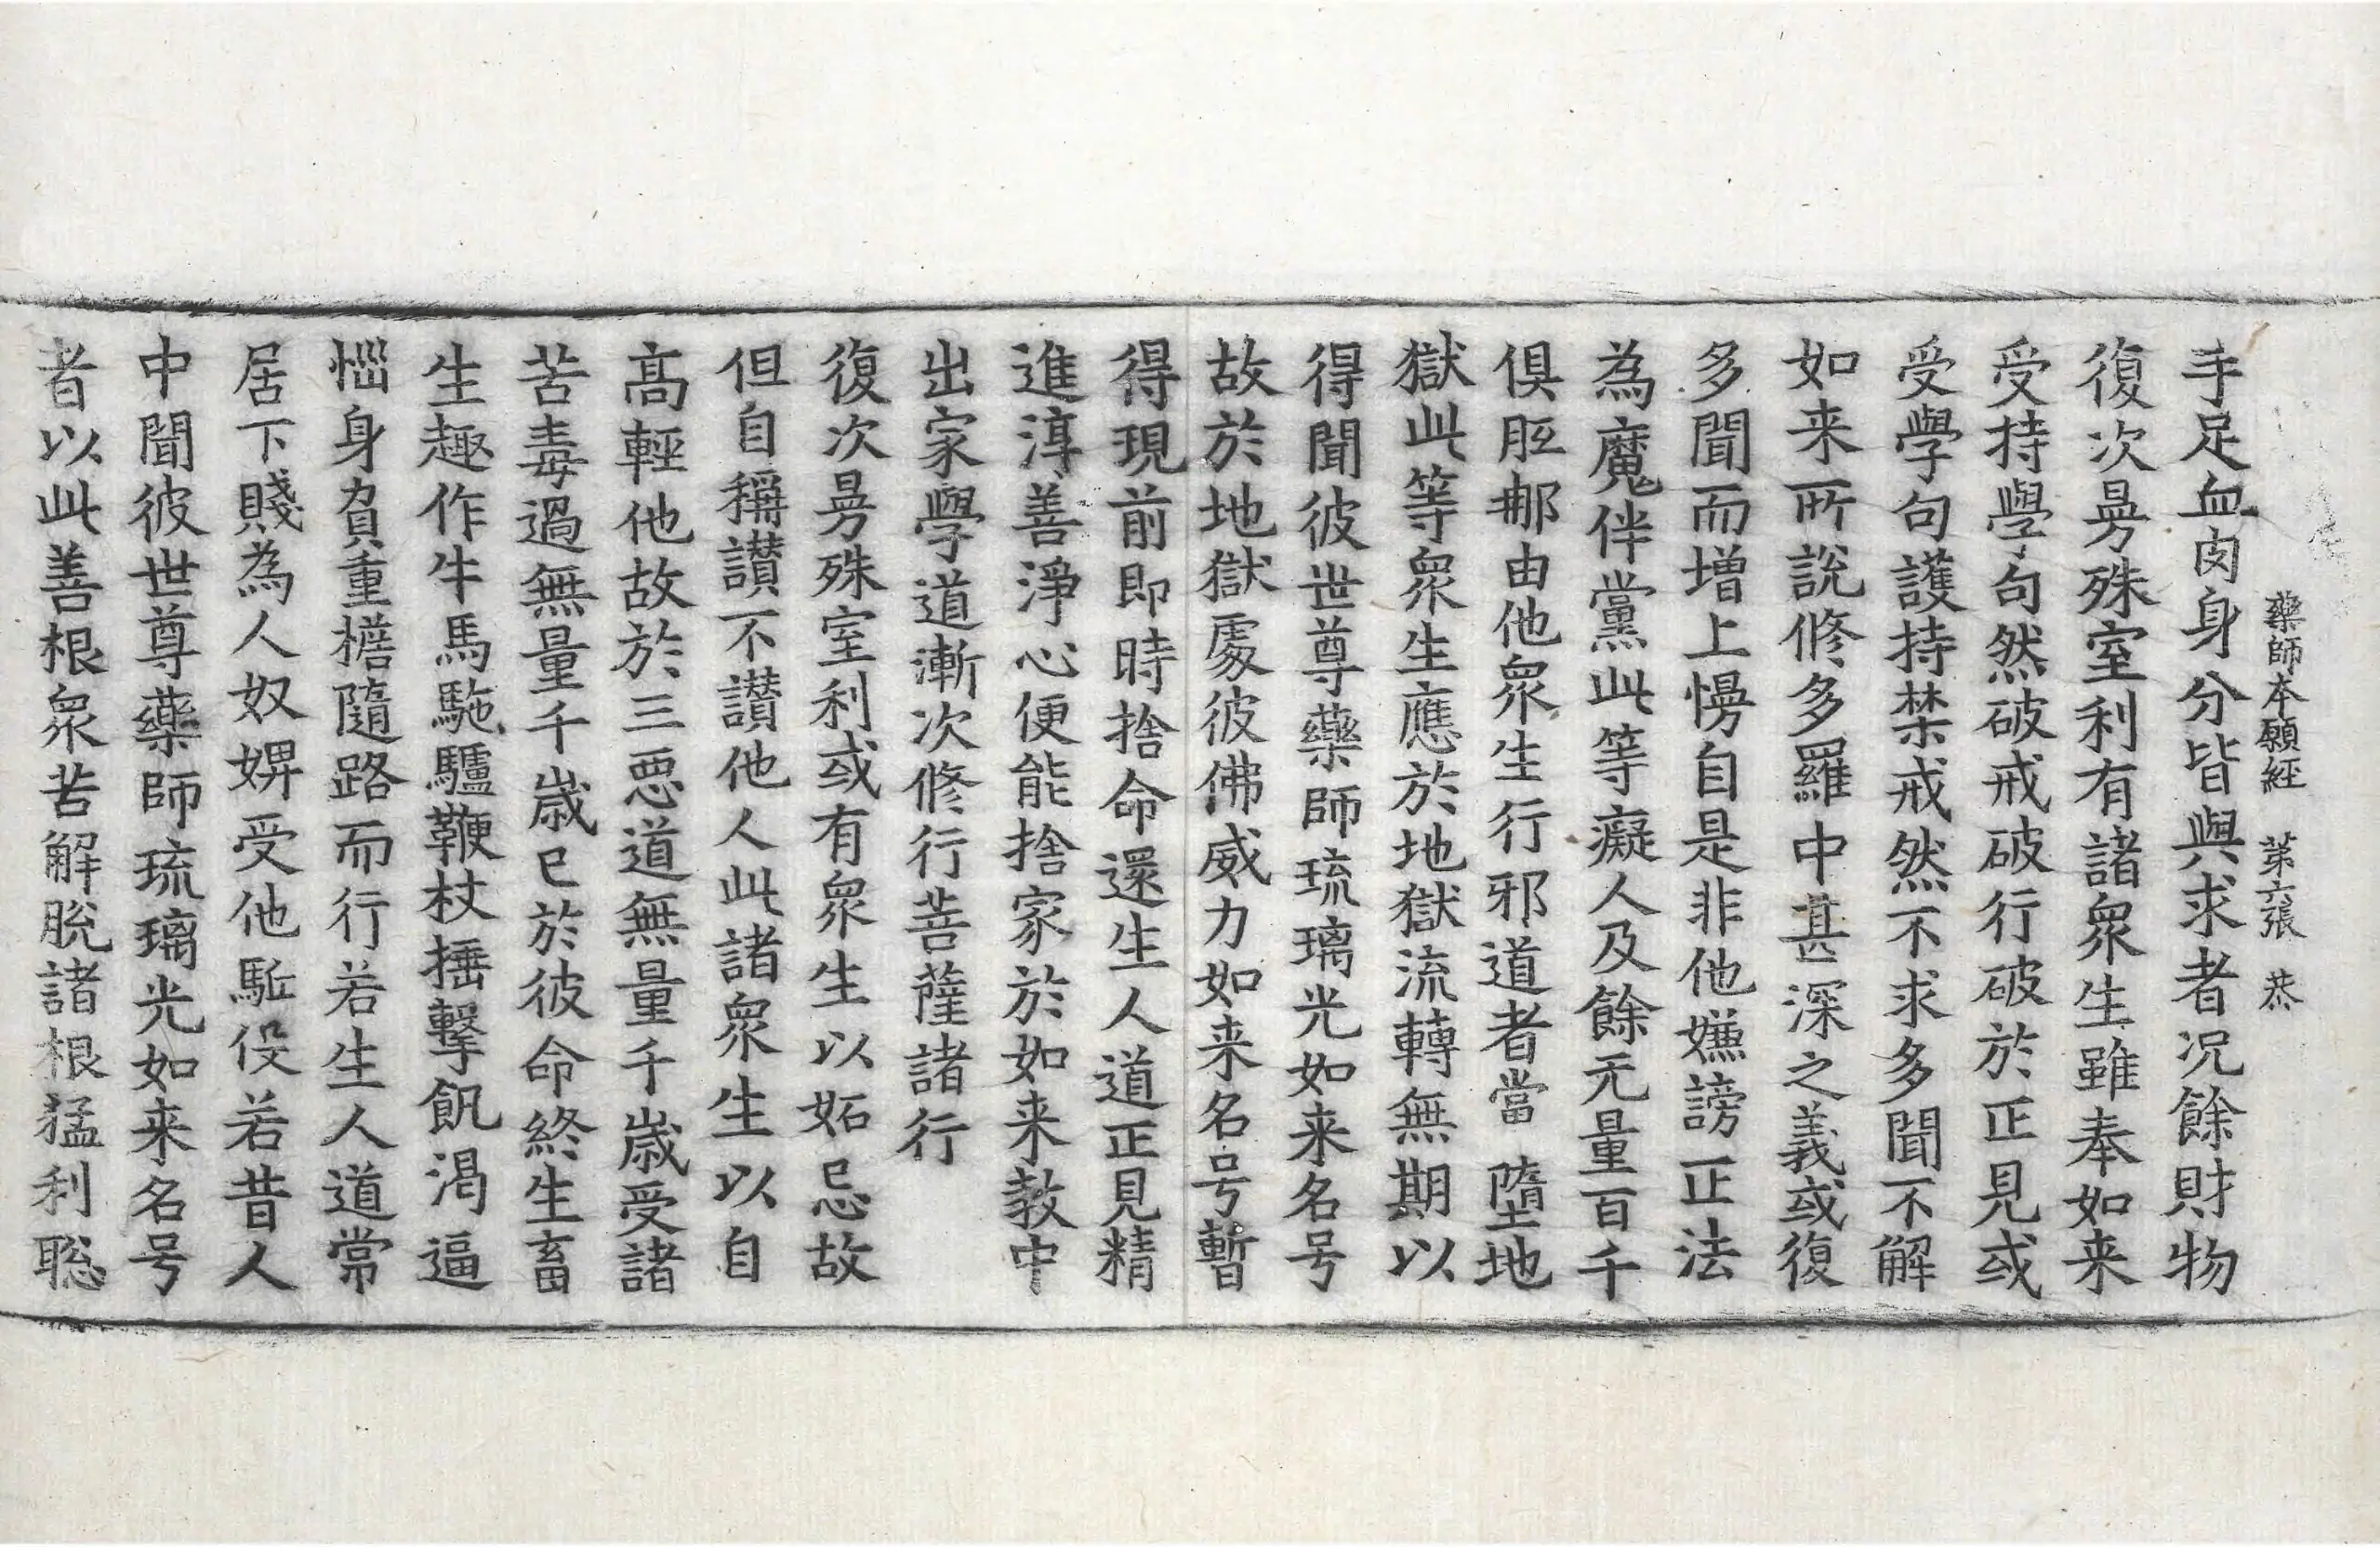 藥師本願經 第六張 恭
手足血肉身分皆與求者况餘財物
復次曼殊室利有諸衆生雖奉如来
受持學句然破戒破行破於正見或
受學句護持禁戒然不求多聞不解
如来所說修多羅中甚深之義或復
多聞而增上慢自是非他嫌謗正法
為魔伴黨此等癡人及餘无量百千
俱胝𨚗由他衆生行邪道者當墮地
獄此等衆生應於地獄流轉無期以
得聞彼世尊藥師琉璃光如来名号
故於地獄處彼佛威力如来名号暫
得現前即時捨命還生人道正見精
進淳善淨心便能捨家於如来教中
出家學道漸次修行菩薩諸行
復次曼殊室利或有衆生以妬忌故
但自稱讃不讃他人此諸衆生以自
高輕他故於三惡道無量千歲受諸
苦毒過無量千歲已於彼命終生畜
生趣作牛馬駞驢鞭杖捶擊飢渇逼
惱身負重檐隨路而行若生人道常
居下賤為人奴婢受他駈役若昔人
中聞彼世尊藥師琉璃光如来名号
者以此善根衆苦解脫諸根猛利聡